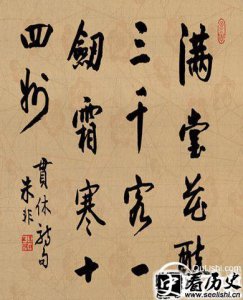 满堂花醉
三千客一
劍霜寒十
四州
貫休诗句
朱非
qulishi.com
看历史
www.seelishi.com